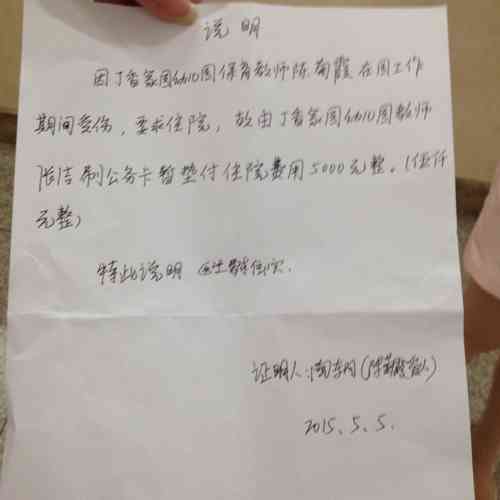 说明
因丁香家园幼儿园保育教师陈菊霞在园工作
期间受伤，要求住院，故由丁香家园幼儿园教师
张洁刷公务卡暂垫付住院费用5000元整。（伍仟
元整）
特此说明
证明人：
2015.5.5.